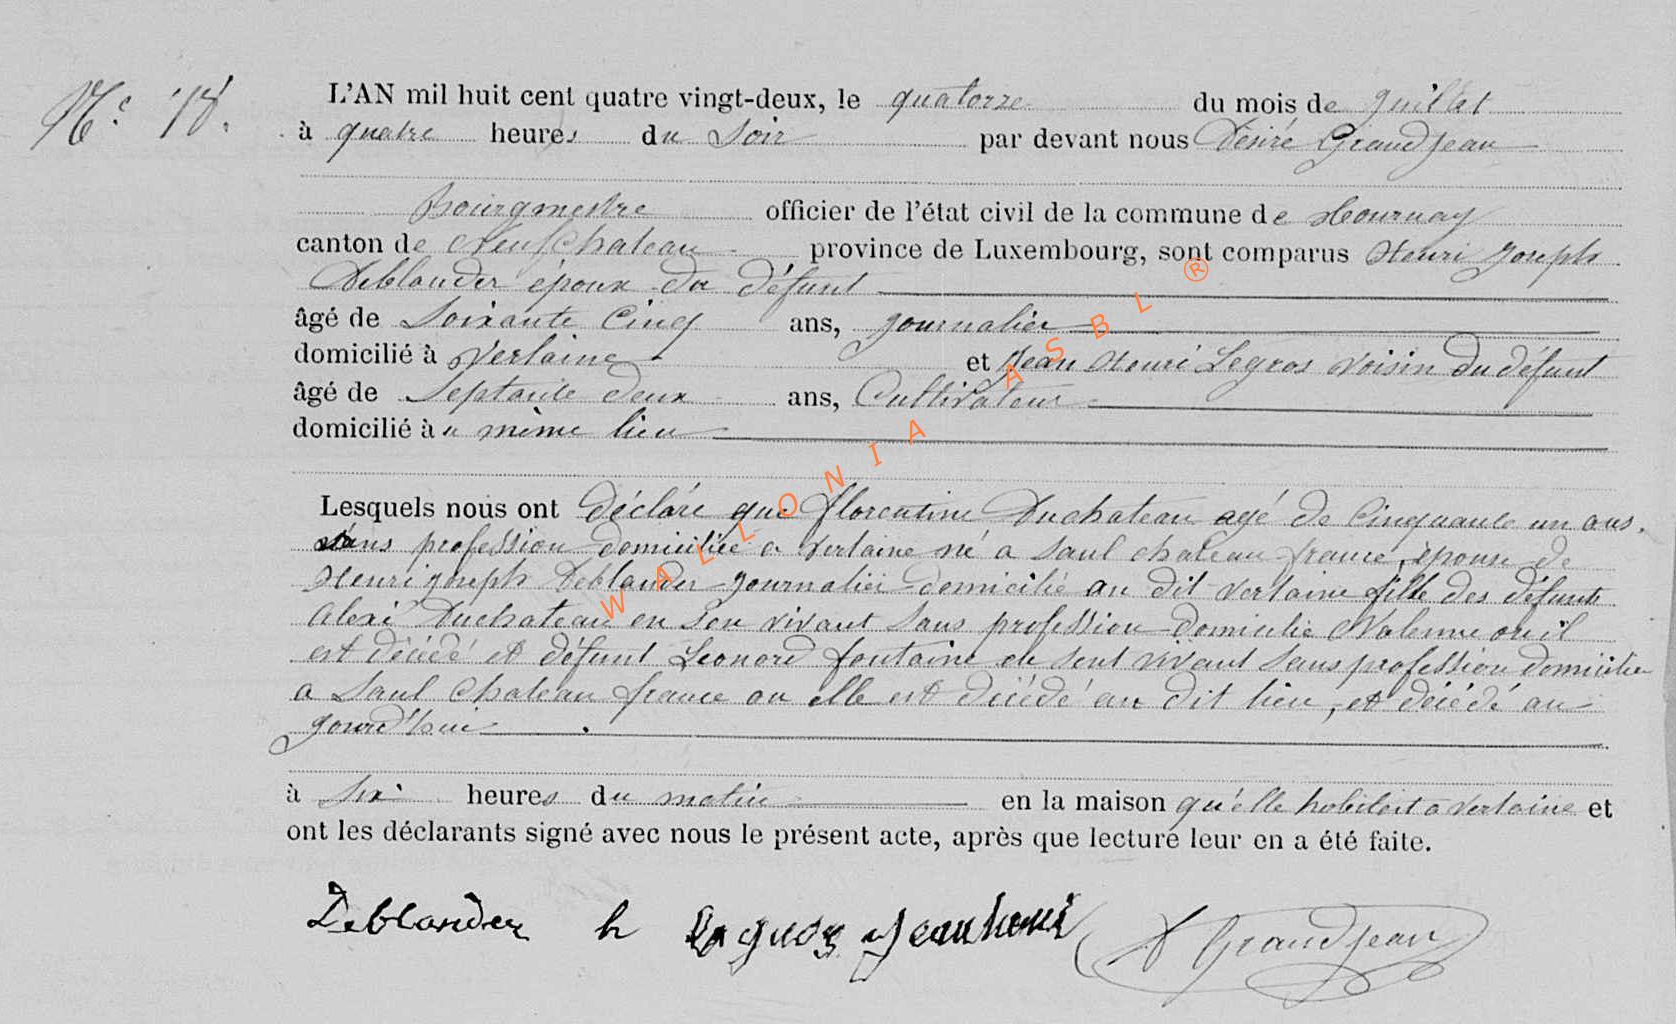 Nº 18.
L'AN mil huit cent quatre vingt-deux, le quatorze du mois de Juillet
à quatre heures du Soir par devant nous Désiré Grandjean
bourgmestre officier de l'état civil de la commune de Hournay
canton de Neufchateau province de Luxembourg, sont comparus Henri Joseph
Deblander époux du défunt
âgé de Soixante Cinq ans, journalier
domicilié à Verlaine et Jean Henri Legros voisin du défunt
âgé de Septante deux ans, Cultivateur
domicilié à u même lieu
Lesquels nous ont déclaré que florentine Duchateau agé de Cinquante un ans.
sans profession domiciliée a Verlaine né a Saul chateau france, épouse de
Henri joseph Deblander journalier domicilié au dit Verlaine fille des défunts
Alexi Duchateau en son vivant Sans profession domicilié ou il
est décédé et défunt Leonord fontaine de sent vivant sans profession domicilie
a Saul Chateau france ou elle est décédé au dit lieu, et décédé au
jourd'hui.
à six heures du matin en la maison qu'elle habitait a Verlaine et
ont les déclarants signé avec nous le présent acte, après que lecture leur en a été faite.
Deblander h Legros Jean henri D Grandjean
WALLONIA ASBL ®